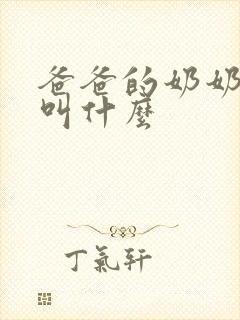 爸爸的奶奶
叫什麼
丁氣軒